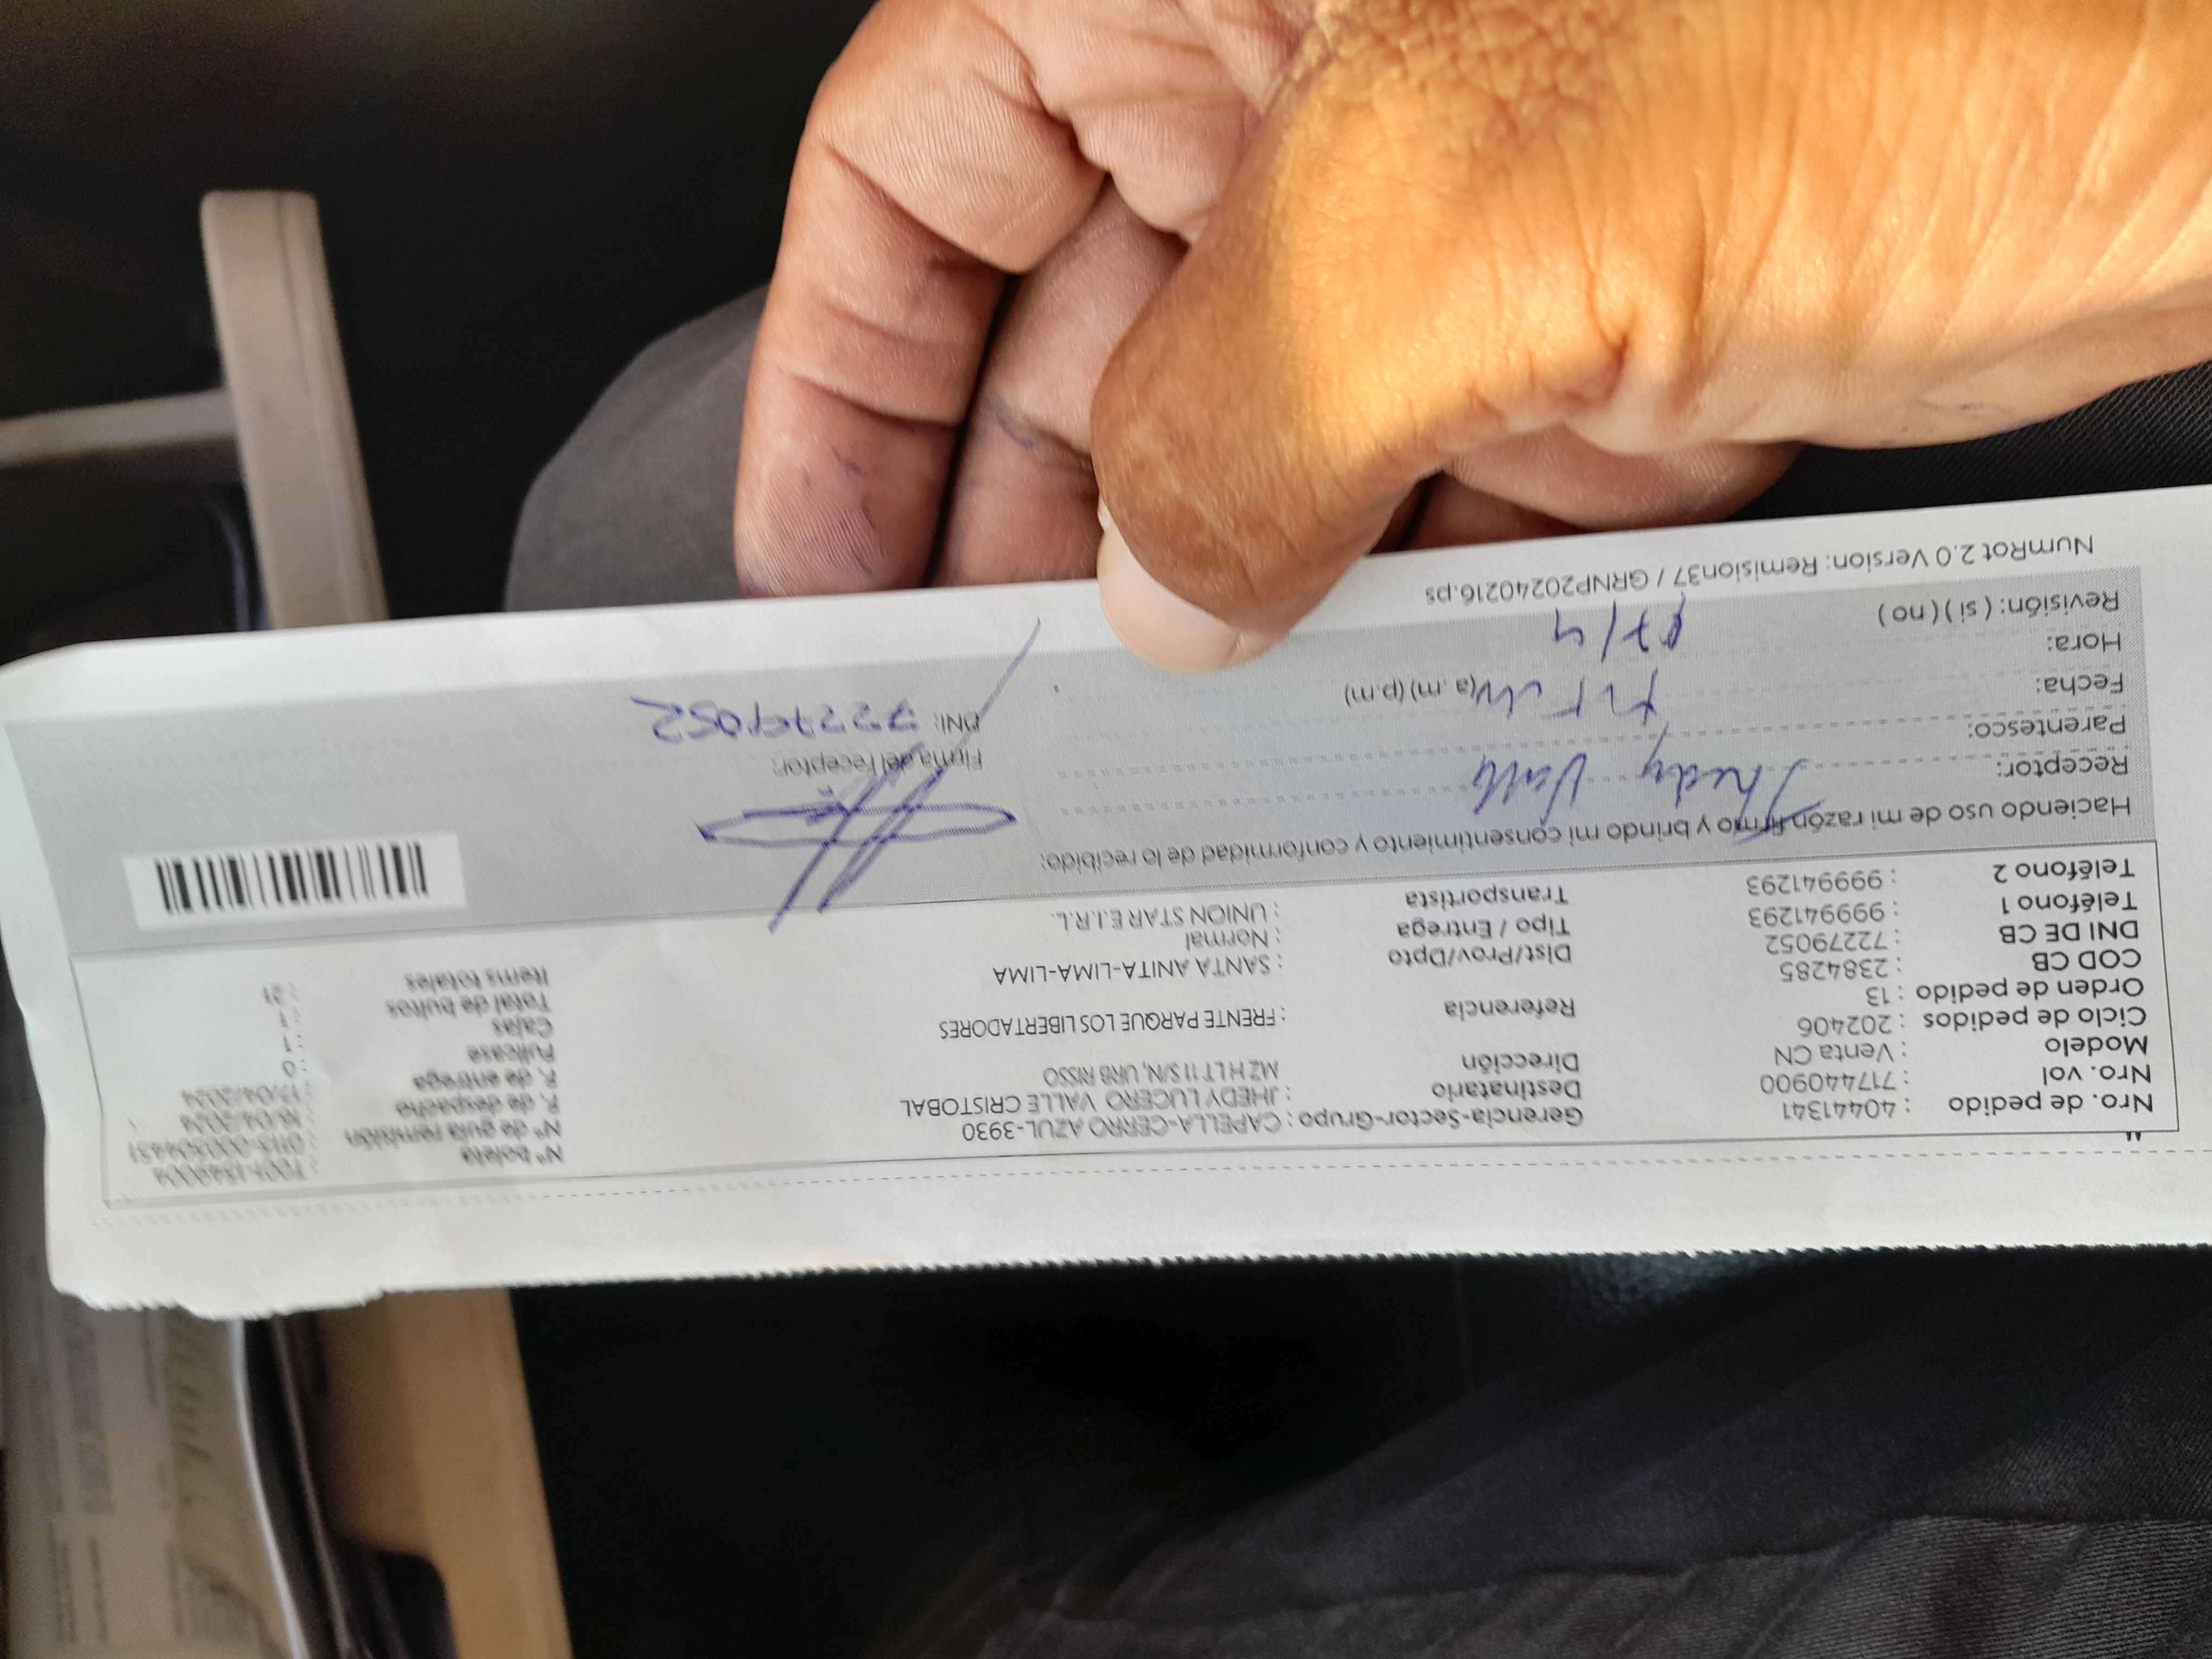 Nro. de pedido : 40441341
Nro. vol : 717440900
Modelo : Venta CN
Ciclo de pedidos : 202406
Orden de pedido : 13
COD CB : 2384285
DNI DE CB : 72279052
Teléfono 1 : 999941293
Teléfono 2 : 999941293
Gerencia-Sector-Grupo : CAPELLA-CERRO AZUL-3930
Destinatario : JHEDY LUCERO VALLE CRISTOBAL
Dirección MZ H LT 11 S/N, URB RISSO
Referencia : FRENTE PARQUE LOS LIBERTADORES
Dist/Prov/Dpto : SANTA ANITA-LIMA-LIMA
Tipo / Entrega : Normal
Transportista : UNION STAR E.I.R.L.
Nº boleta
Nº de guía remisión
F. de despacho : 16/04/2024
F. de entrega : 17/04/2024
Fullcase : 0
Cajas : 1
Total de bultos : 1
Items totales : 21
Haciendo uso de mi razón firmo y brindo mi consentimiento y conformidad de lo recibido:
Receptor: Jhedy Valle
Parentesco:
Fecha:
Hora: (a. m) (p.m)
Revisión: ( si ) ( no )
Firma del receptor:
DNI: 72279052
NumRot 2.0 Version: Remision37 / GRNP20240216.ps